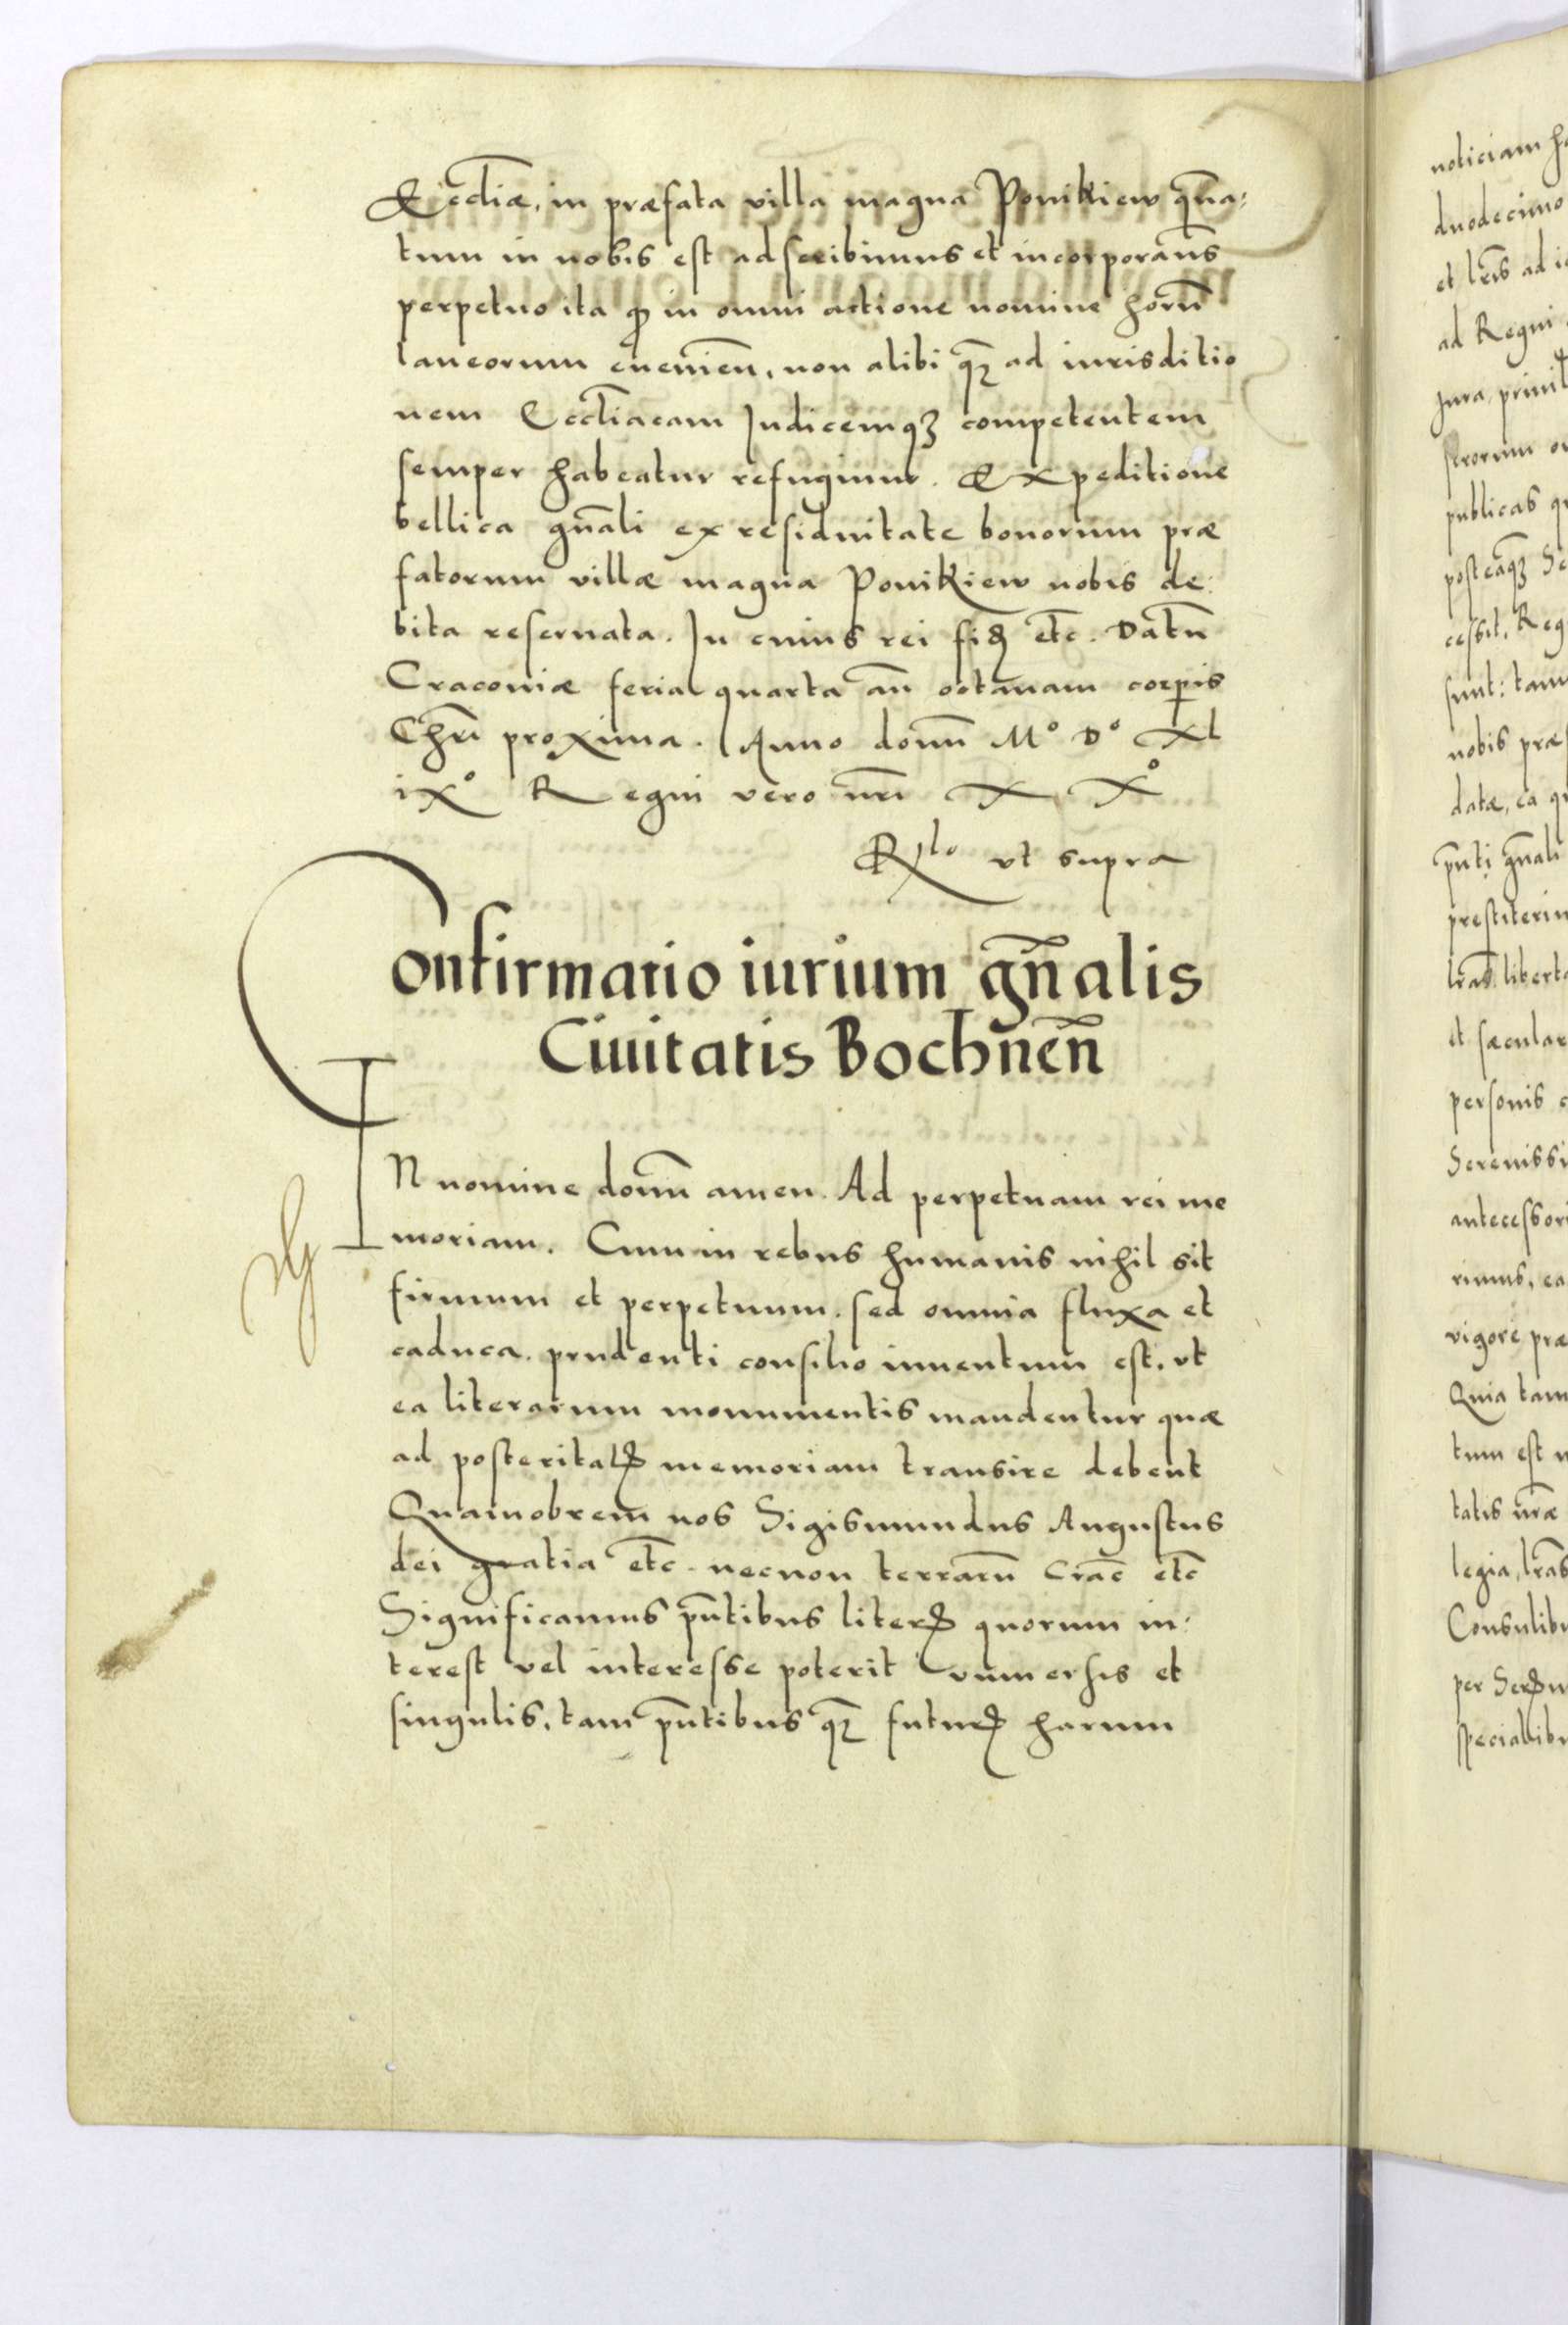 Eccliæ, in præfata villa magna Ponikiew qña:
tum in nobis est adscribimus et incorporam̃s
perpetuo ita ꝙ in omni actione nomine horũ
laneorum eueñieñ, non alibi q̃ꝫ ad iurisditio
nem Eccl̃iacam Judicemqꝫ competentem
semper habeatur refugium. Expeditione
bellica gñali ex residuitate bonorum præ
fatorum villæ magna Ponikiew nobis de:
bita reseruata. In cuius rei fidẽ etc. Datũ
Cracouiæ feria quarta añ octauam corp̃is
Chr̃i proxima. Anno domĩ Mº Dº xl
ixº Regni vero nr̃i X Xº
Rlo vt supra
Confirmatio iurium gñalis
Ciuitatis Bochneñ
IN nomine domĩ amen. Ad perpetuam rei me
moriam. Cum in rebus humanis nihil sit
firmum et perpetuum. sed omnia fluxa et
caduca. prudenti consilio inuentum est, vt
ea literarum monumentis mandentur quæ
ad posteritatꝭ memoriam transire debent
Quamobrem nos Sigismundus Augustus
dei gratia etc. necnon terrarũ Crac̃ etc
Significamus pñtibus literꝭ quorum in:
terest vel interesse poterit vniuersis et
singulis, tam pñtibus q̃ꝫ futurꝭ harum
noticiam
duodecimo
et lr̃is ad
ad Regni
Jura, priuil
publicas
posteaqꝫ
cessit, Reg
sunt: tam
nobis præ
datæ, ea
pñti gñali
prestiterin
lr̃as libert
et sæcular
personis
Serenissi
antecessor
rimus, ea
vigore præ
Quia tam
tum est
tatis nr̃æ
legia, lr̃as
Consulib
per
speciallib